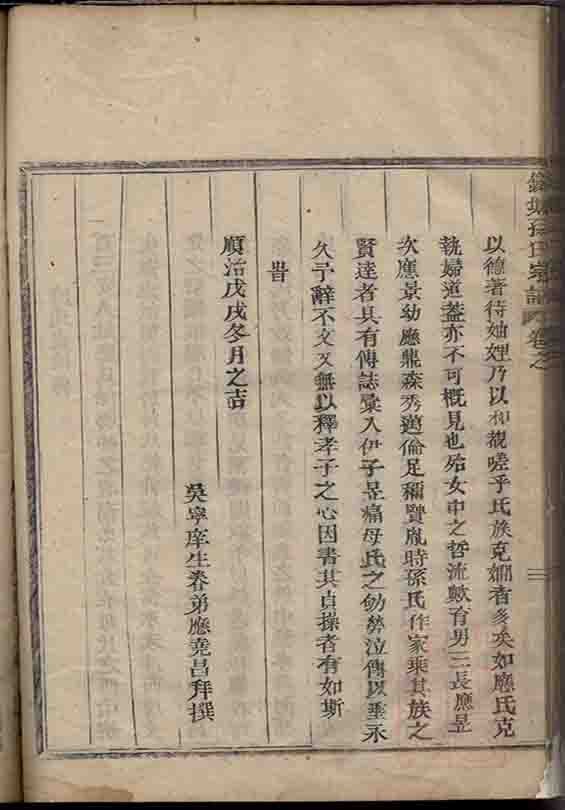 孫氏宗譜卷之
以德著待妯娌乃以和觀嗟乎氏族克嫺者多矣如應氏克
執婦道葢亦不可概見也殆女中之哲流歟育男三長應昱
次應景幼應鼎森秀邁倫足稱賢胤時孫氏作家乘其族之
賢達者具有傳誌彙入伊子昱痛母氏之劬勞泣傳以垂永
久予辭不文又無以釋孝子之心因書其貞操者有如斯
旹
順治戊戌冬月之吉
吳寧庠生眷弟應堯昌拜撰